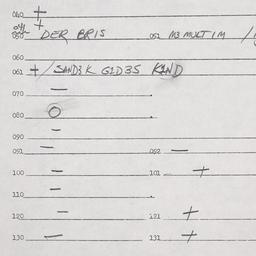 040 +
041 +
050 DER BRIS 051 M3 MULT 1M /
060
061 + / SAND3K G2D35 KIND
070 —
080 O
090 —
091 — 092 —
100 — 101 +
110 —
120 — 121 +
130 — 131 +